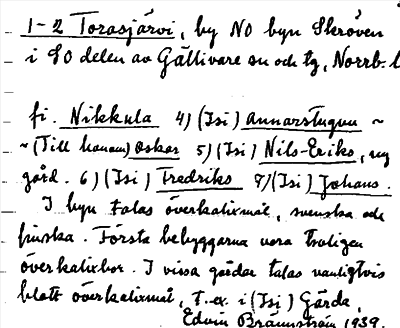 1-2 Torasjärvi, by NO byn Skröven
i SO delen av Gällivare sn och tg, Norrb. l
fi. Nikkula 4) (Isi) Annarstugun ~
~ (Till hanom) Oskar 5) (Isi) Nils-Eriks, ny
gård. 6) (Isi) Fredriks 7) (Isi) Johans.
I byn talas överkalixmål, svenska och
finska. Första bebyggarna vora troligen
överkalixbor. I vissa gårdar talas vanligtvis
blott överkalixmål, t.ex. i (Isi) Gårda,
Edvin Brännström 1939.